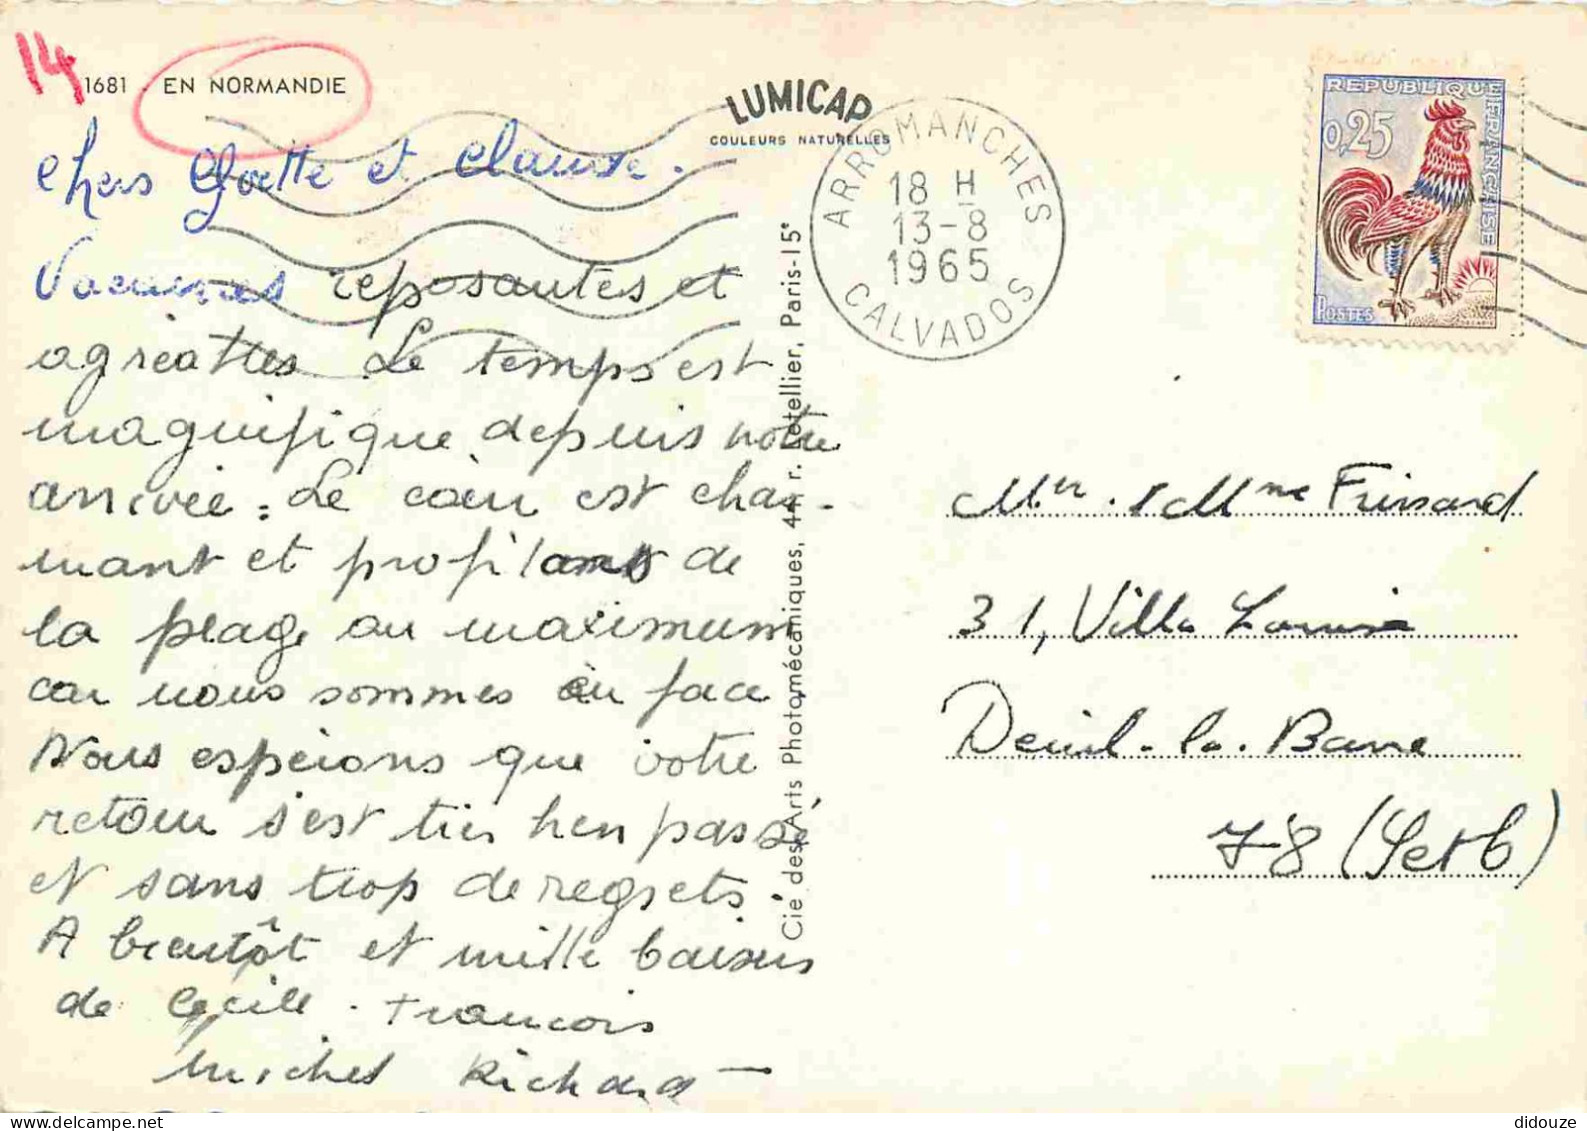 14
1681 . EN NORMANDIE
LUMICAP
COULEURS NATURELLES
ARROMANCHES
18 H
13-8
1965
CALVADOS
REPUBLIQUE FRANÇAISE
0,25
POSTES
Chers Yvette et Claude.
Vacances reposantes et
agréables Le temps est
magnifique depuis notre
arrivée. Le coin est char-
mant et profitons de
la plage au maximum
car nous sommes en face
Nous espérons que votre
retour s'est très bien passé
et sans trop de regrets.
A bientôt et mille baisers
de Cécile . François
Michel Richard
Cie des Arts Photomécaniques, 44, r. Letellier, Paris-15e
Mr . & Mme Frissard
31, Villa Louise
Deuil-la-Barre
78 (S et O)
didouze